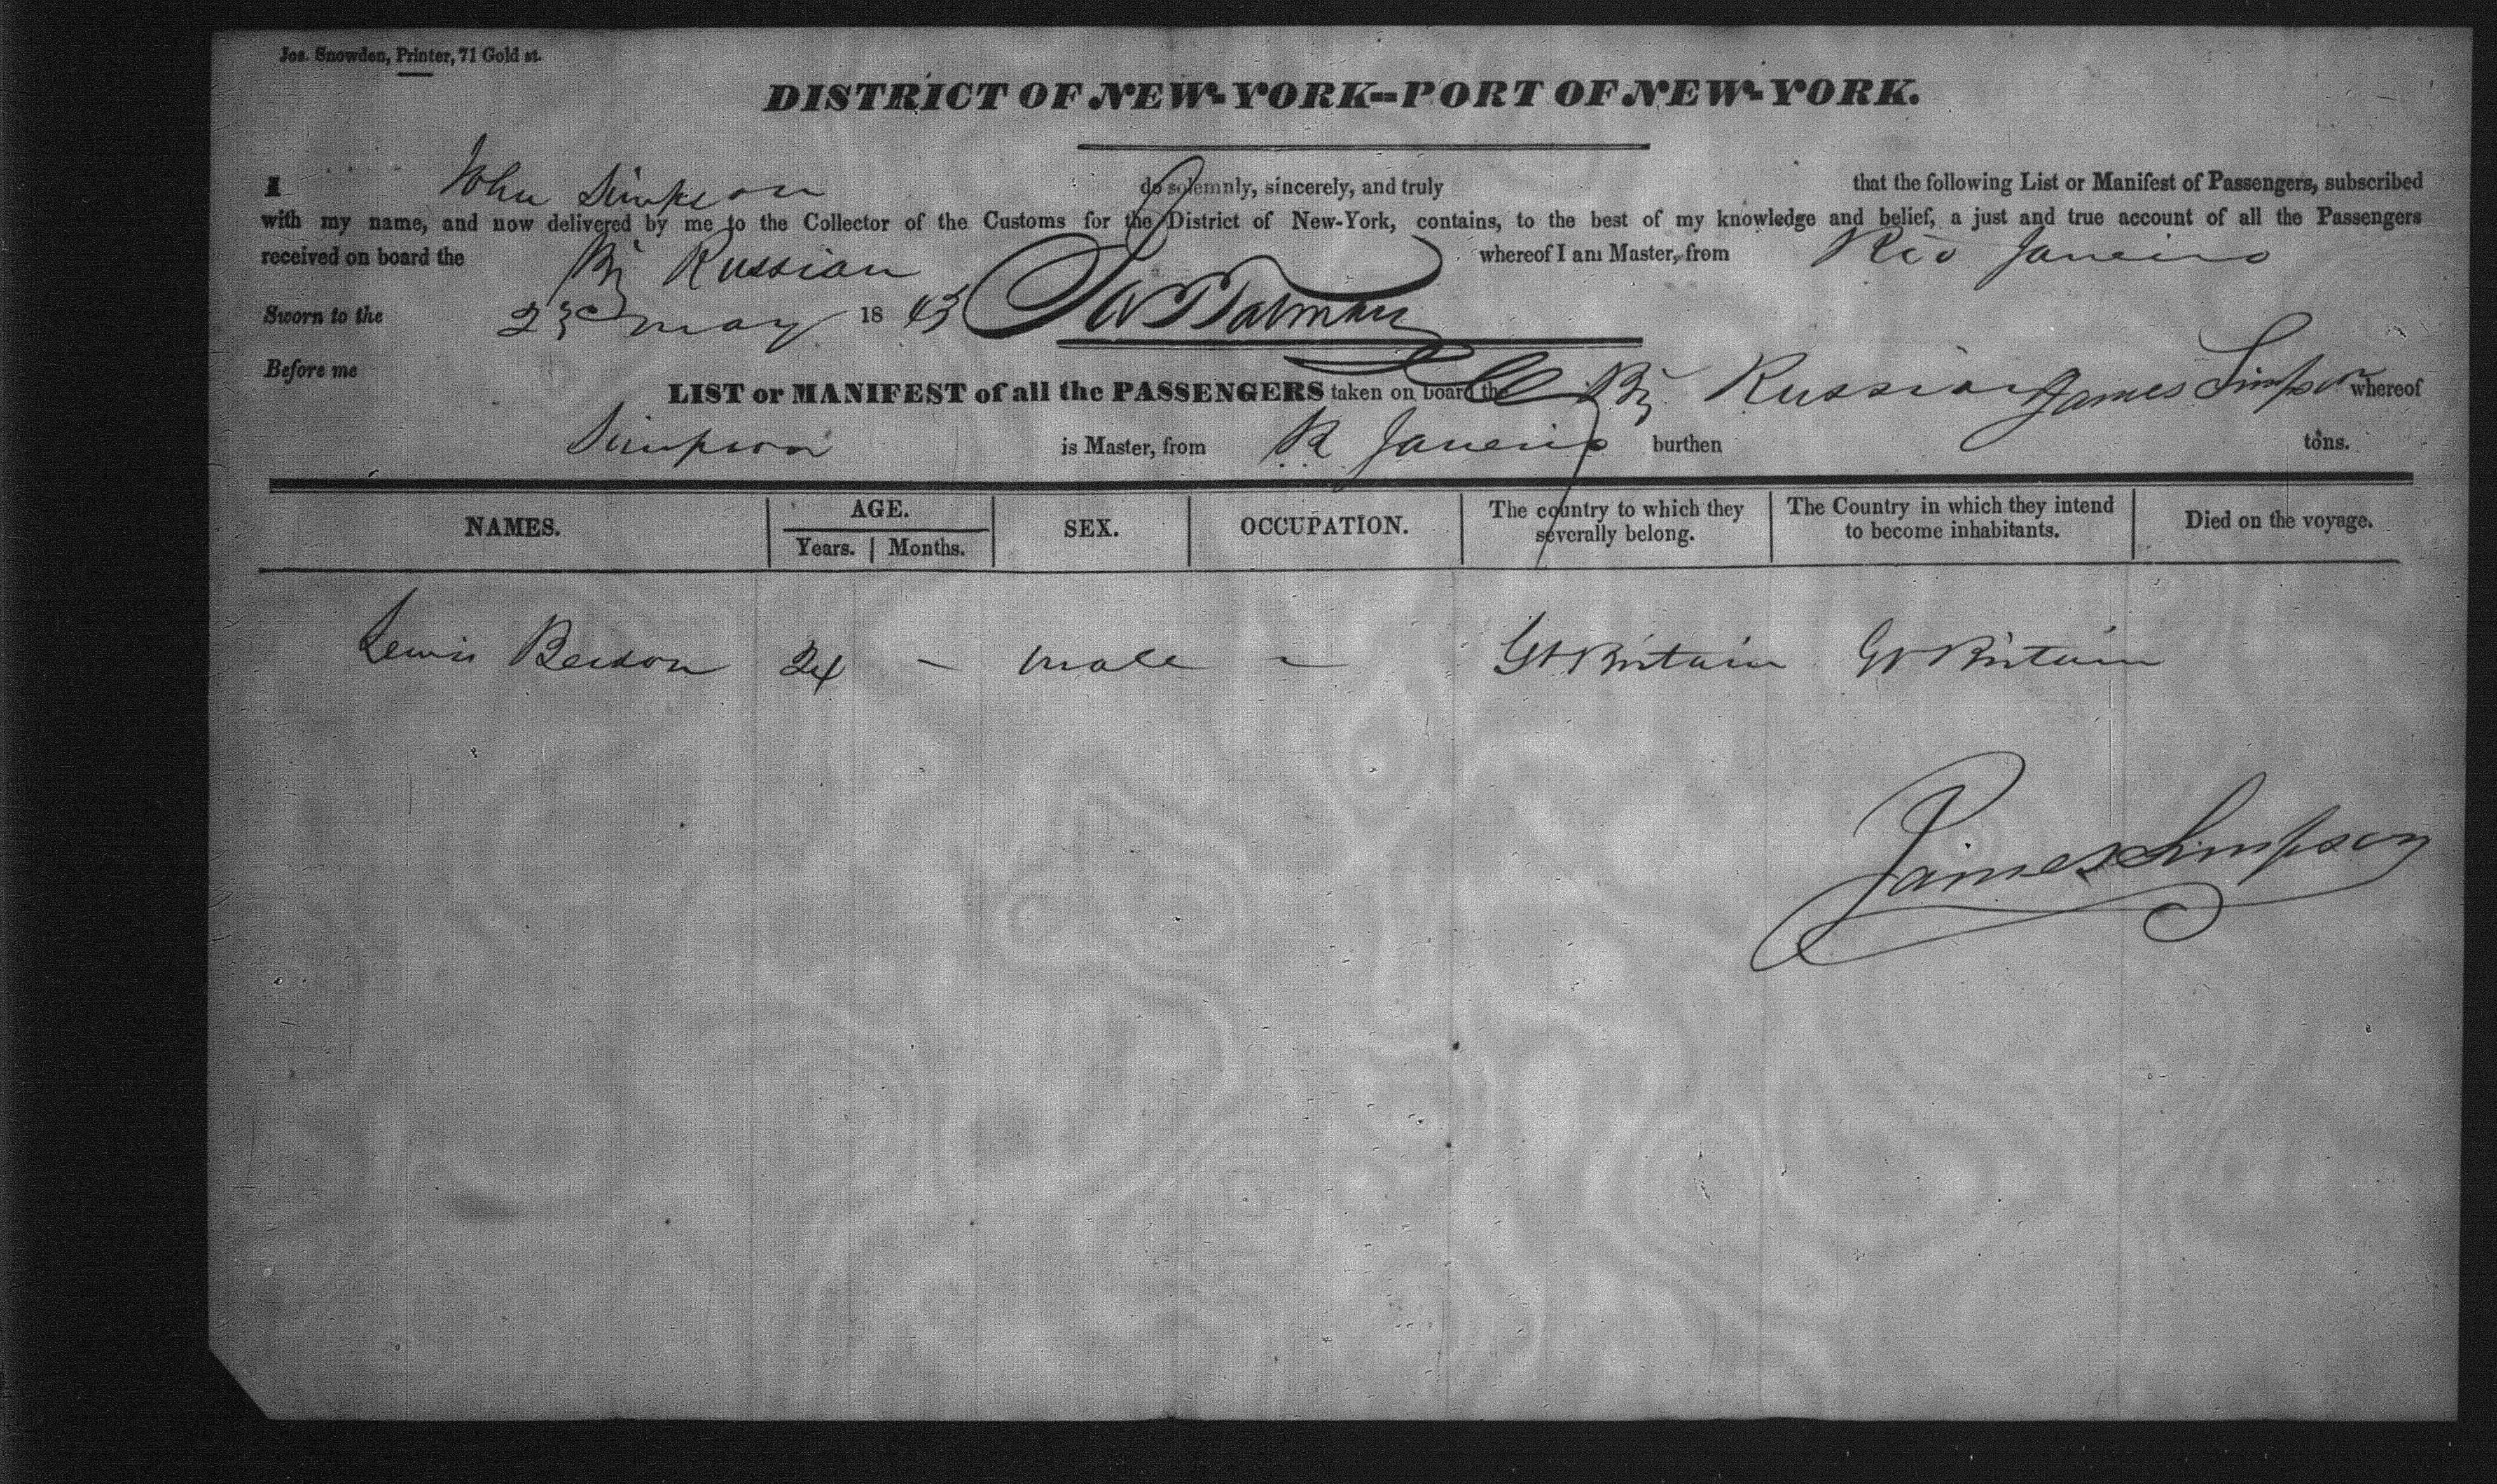 Jos. Snowden, Printer, 71 Gold st.
DISTRICT OF NEW-YORK--PORT OF NEW-YORK.
I John Simpson do solemnly, sincerely, and truly that the following List or Manifest of Passengers, subscribed
with my name, and now delivered by me to the Collector of the Customs for the District of New-York, contains, to the best of my knowledge and belief, a just and true account of all the Passengers
received on board the Bg Russian whereof I am Master, from Rio Janeiro
Sworn to the 23d May 1843
Before me
LIST or MANIFEST of all the PASSENGERS taken on board the Bg Russian James Simpson whereof
Simpson is Master, from R Janeiro burthen tons.
NAMES. AGE. Years. Months. SEX. OCCUPATION. The country to which they severally belong. The Country in which they intend to become inhabitants. Died on the voyage.
Lewis 24 - male - Gt Britain Gt Britain
James Simpson